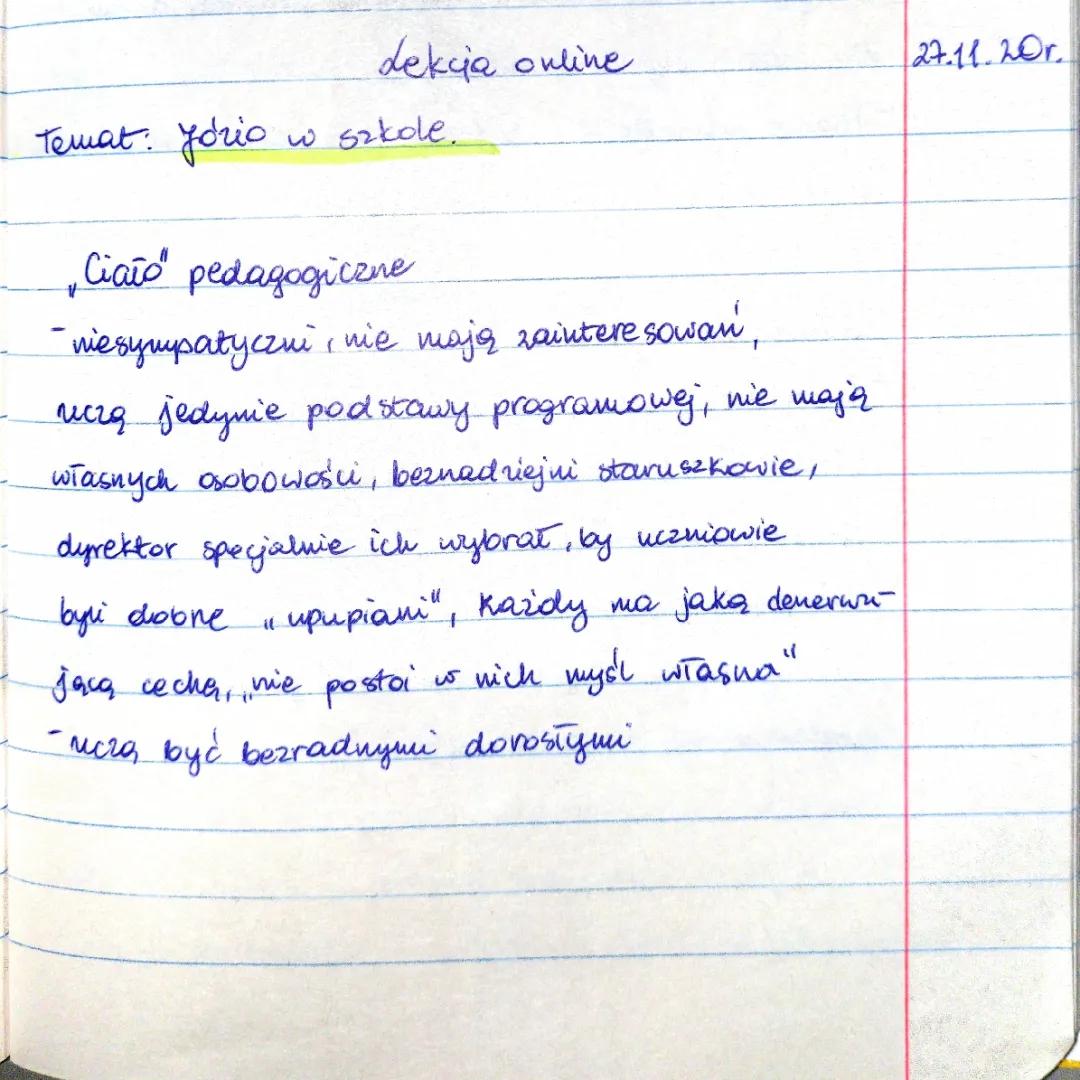 Lekcja online 27.11.20r.
Temat: Józio w szkole.
„Ciało" pedagogiczne
- niesympatyczni, nie mają zainteresowań,
uczą jedynie podstawy programowej, nie mają
własnych osobowości, beznadziejni staruszkowie,
dyrektor specjalnie ich wybrał, by uczniowie
byli dobrze „upupiani", każdy ma jaką denerwu-
jącą cechą, „nie postoi w nich myśl własna"
- uczą być bezradnymi dorosłymi